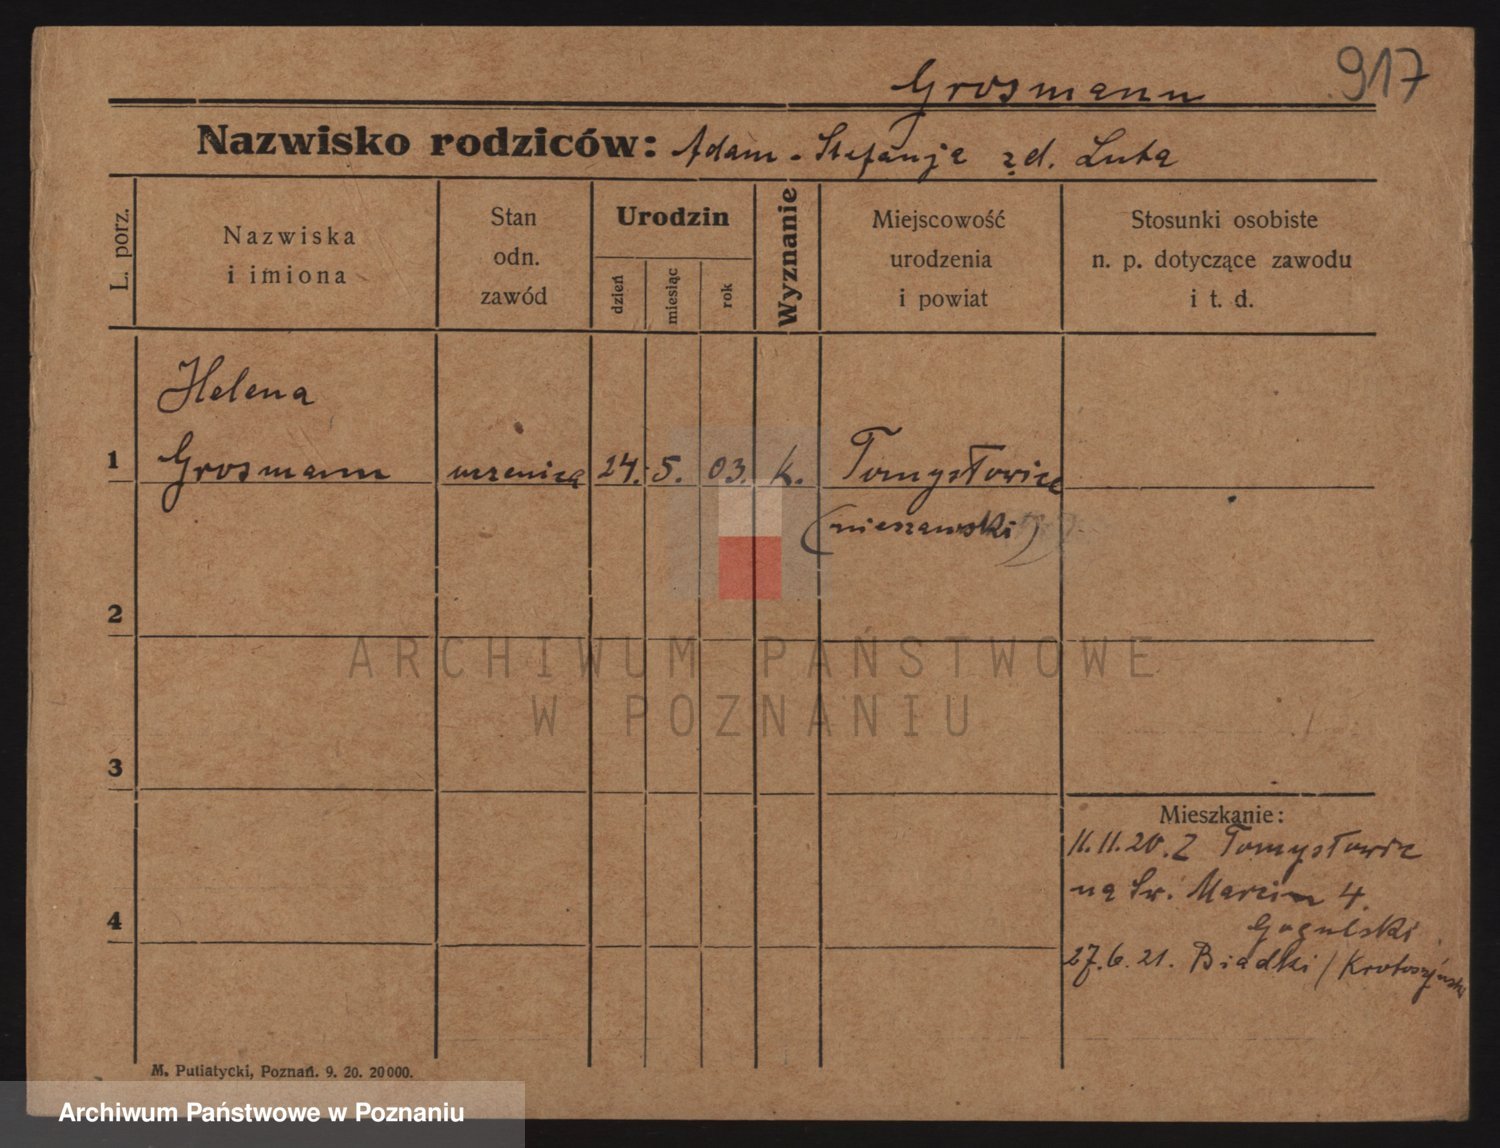 917
Grosmann
Nazwisko rodziców: Adam - Stefanja zd. Luta
L. porz.
Nazwiska
i imiona
Stan
odn.
zawód
Urodzin
dzień
miesiąc
rok
Wyznanie
Miejscowość
urodzenia
i powiat
Stosunki osobiste
n. p. dotyczące zawodu
i t. d.
Helena
1 Grosmann uczenica 24. 5. 03. k. Tomysłowice
(nieszawski)
2
ARCHIWUM PAŃSTWOWE
W POZNANIU
3
Mieszkanie:
11.11.20. Z Tomysłowic
na Św. Marcin 4.
4
Gogulski
27.6.21. Biadki / Krotoszyński
M. Putiatycki, Poznań. 9. 20. 20000.
Archiwum Państwowe w Poznaniu